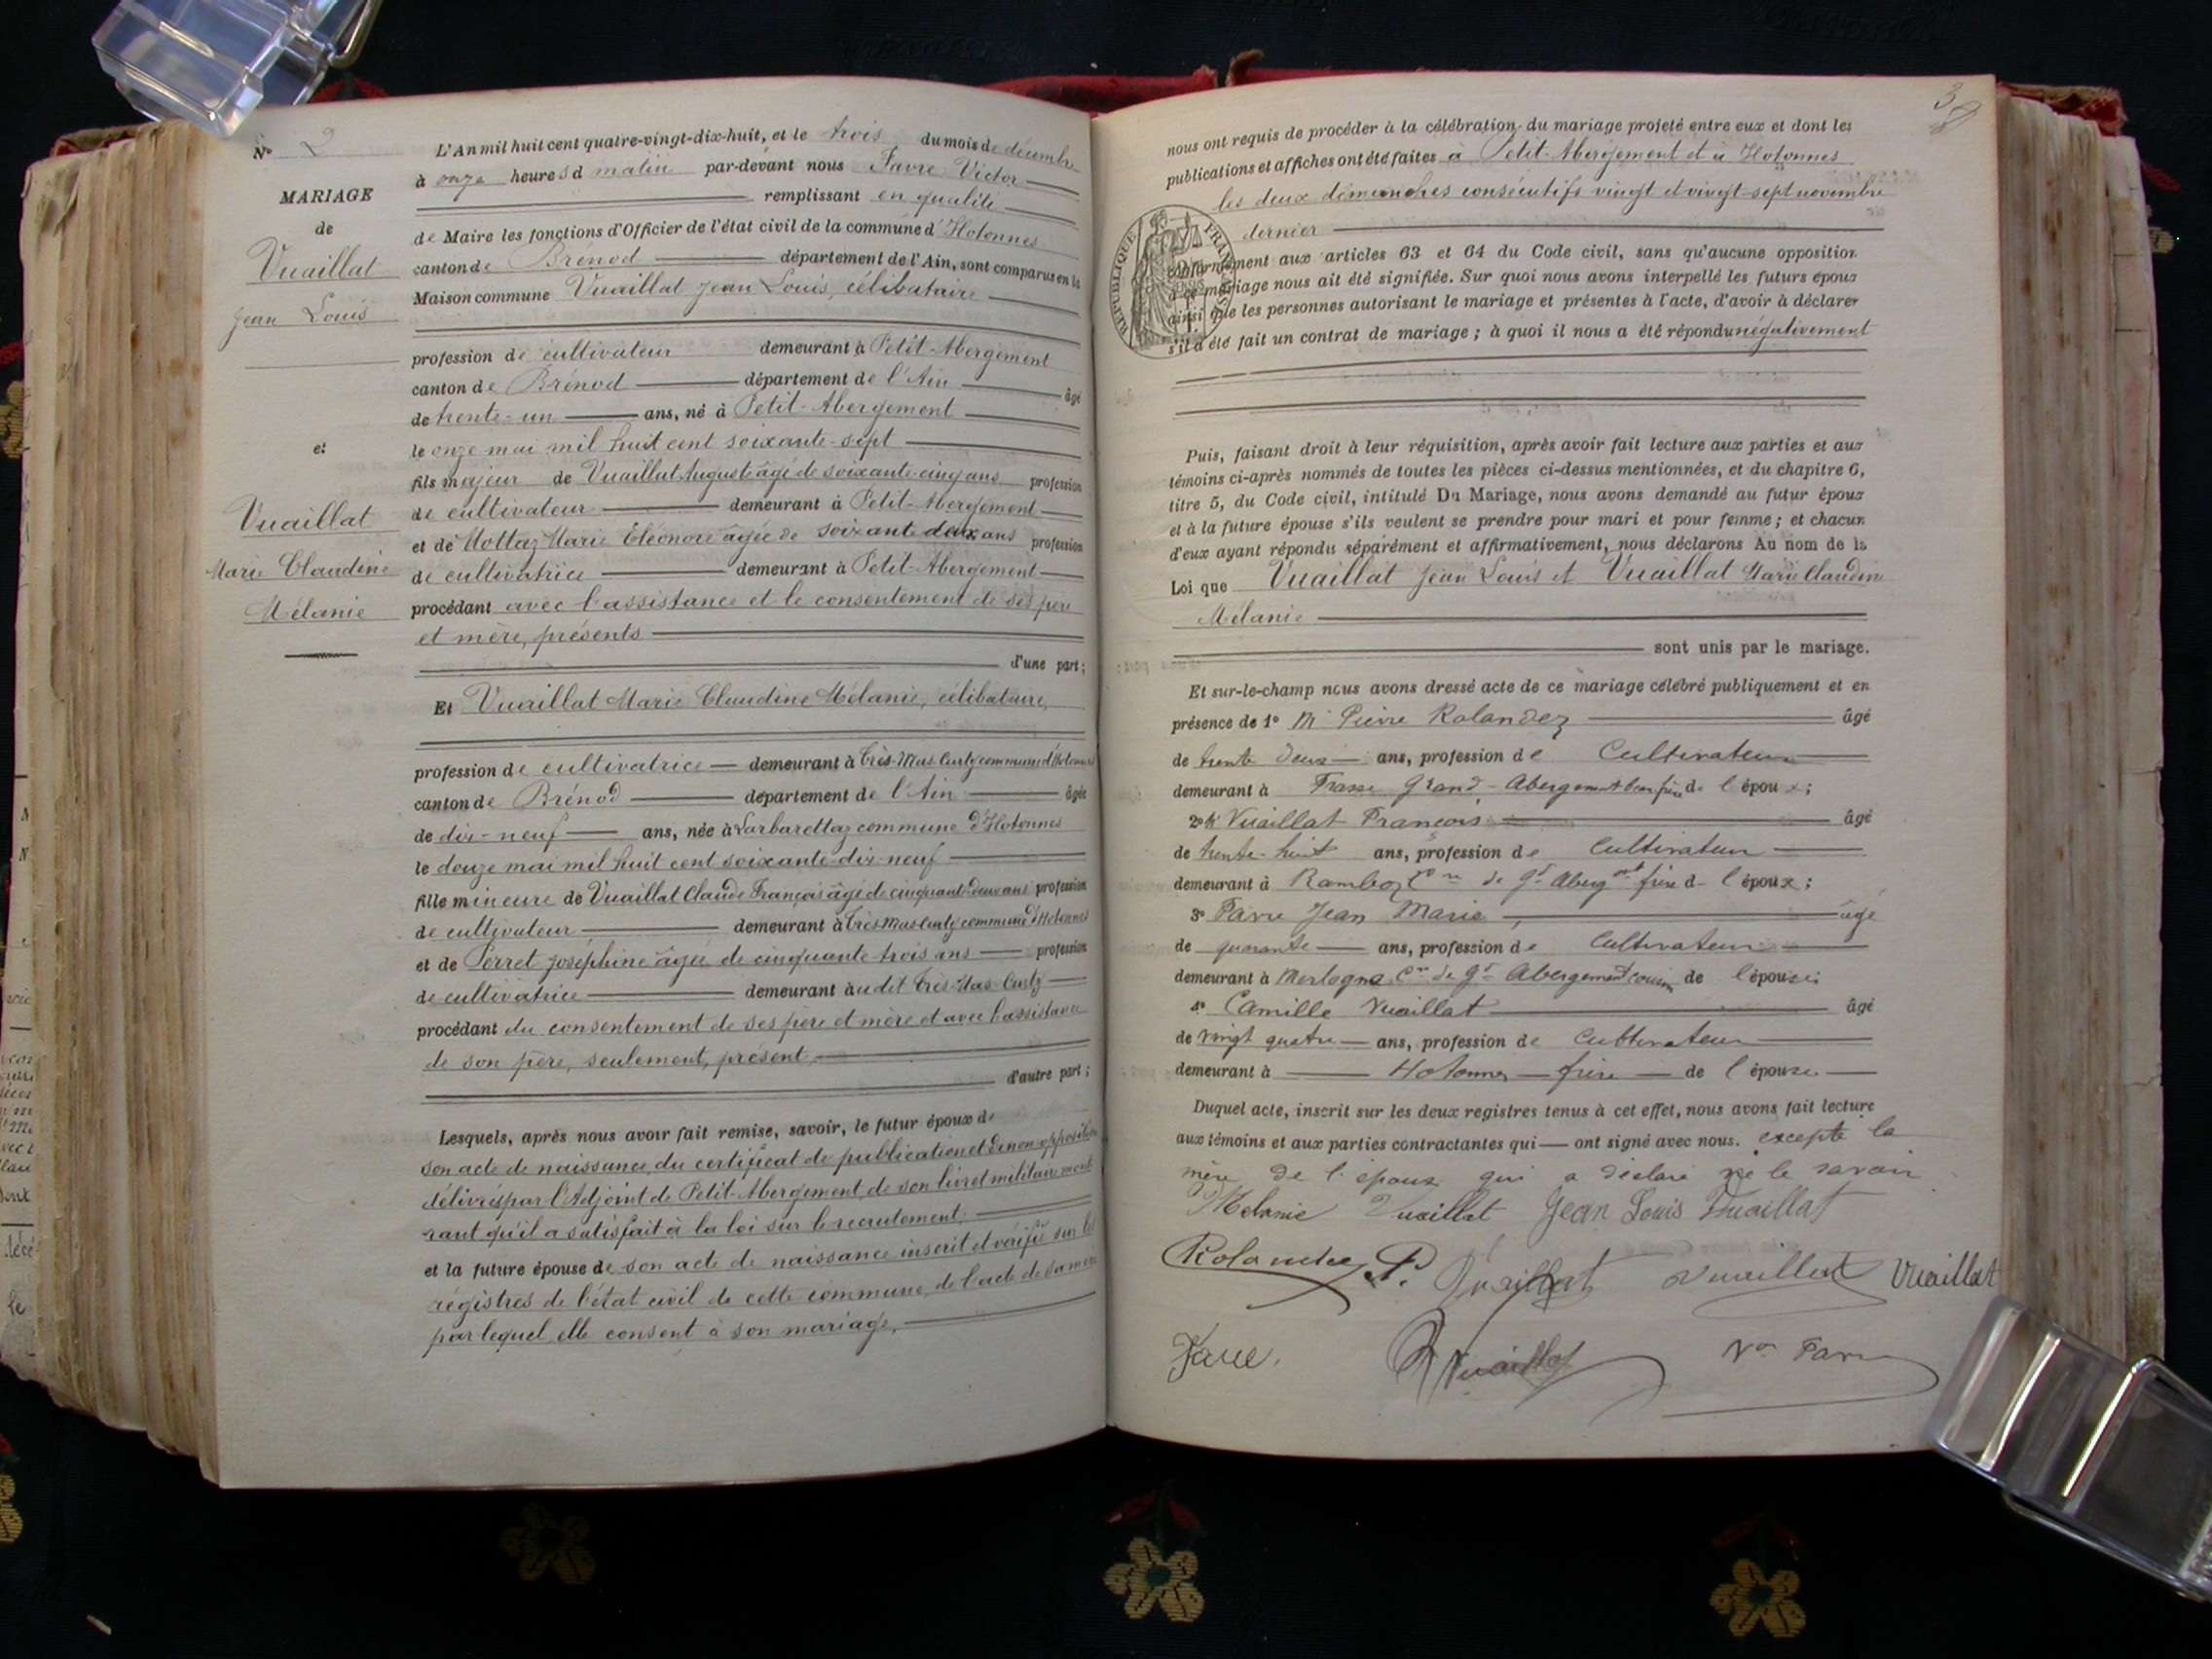 Nº 2
MARIAGE
de
Vuaillat
Jean Louis
et
Vuaillat
Marie Claudine
Mélanie
L'An mil huit cent quatre-vingt-dix-huit, et le trois du mois de décembre
à onze heures d matin par-devant nous Favre Victor
remplissant en qualité
de Maire les fonctions d'Officier de l'état civil de la commune d'Hotonnes
canton de Brénod département de l'Ain, sont comparus en la
Maison commune Vuaillat Jean Louis, célibataire
profession de cultivateur demeurant à Petit-Abergement
canton de Brénod département de l'Ain âgé
de trente-un ans, né à Petit-Abergement
le onze mai mil huit cent soixante-sept
fils majeur de Vuaillat Auguste âgé de soixante-cinq ans profession
de cultivateur demeurant à Petit-Abergement
et de Mottaz Marie Éléonore âgée de soixante deux ans profession
de cultivatrice demeurant à Petit-Abergement
procédant avec l'assistance et le consentement de ses père
et mère, présents
d'une part;
Et Vuaillat Marie Claudine Mélanie, célibataire,
profession de cultivatrice demeurant à Très-Mas-Curtz commune d'Hotonnes
canton de Brénod département de l'Ain âgée
de dix-neuf ans, née à Larbarettaz commune d'Hotonnes
le douze mai mil huit cent soixante-dix-neuf
fille mineure de Vuaillat Claude François âgé de cinquante-deux ans profession
de cultivateur demeurant à Très-Mas-Curtz commune d'Hotonnes
et de Perret Joséphine âgée de cinquante trois ans profession
de cultivatrice demeurant audit Très-Mas-Curtz
procédant du consentement de ses père et mère et avec l'assistance
de son père, seulement, présent.
d'autre part;
Lesquels, après nous avoir fait remise, savoir, le futur époux de
son acte de naissance, du certificat de publication et de non opposition
délivrés par l'Adjoint de Petit-Abergement, de son livret militaire mont
rant qu'il a satisfait à la loi sur le recrutement;
et la future épouse de son acte de naissance inscrit et vérifié sur les
régistres de l'état civil de cette commune, de l'acte de sa mère
par lequel elle consent à son mariage,
38
nous ont requis de procéder à la célébration du mariage projeté entre eux et dont les
publications et affiches ont été faites à Petit-Abergement et à Hotonnes
les deux dimanches consécutifs vingt et vingt-sept novembre
dernier
RÉPUBLIQUE FRANÇAISE
conformément aux articles 63 et 64 du Code civil, sans qu'aucune opposition
à ce mariage nous ait été signifiée. Sur quoi nous avons interpellé les futurs époux
ainsi que les personnes autorisant le mariage et présentes à l'acte, d'avoir à déclarer
s'il a été fait un contrat de mariage; à quoi il nous a été répondu négativement
Puis, faisant droit à leur réquisition, après avoir fait lecture aux parties et aux
témoins ci-après nommés de toutes les pièces ci-dessus mentionnées, et du chapitre 6,
titre 5, du Code civil, intitulé Du Mariage, nous avons demandé au futur époux
et à la future épouse s'ils veulent se prendre pour mari et pour femme; et chacun
d'eux ayant répondu séparément et affirmativement, nous déclarons Au nom de la
Loi que Vuaillat Jean Louis et Vuaillat Marie Claudine
Mélanie
sont unis par le mariage.
Et sur-le-champ nous avons dressé acte de ce mariage célébré publiquement et en
présence de 1º M. Pierre Rolandez âgé
de trente deux ans, profession de Cultivateur
demeurant à Grand-Abergement beau frère de l'époux;
2º M Vuaillat François âgé
de trente-huit ans, profession de Cultivateur
demeurant à Ramboz Cne de Gd Abergmt frère d l'époux;
3º Favre Jean Marie âgé
de quarante ans, profession de Cultivateur
demeurant à Merlogna Cne de Gd Abergement cousin de l'épouse;
4º Camille Vuaillat âgé
de vingt quatre ans, profession de Cultivateur
demeurant à Hotonnes frère de l'épouse
Duquel acte, inscrit sur les deux registres tenus à cet effet, nous avons fait lecture
aux témoins et aux parties contractantes qui ont signé avec nous. excepté la
mère de l'époux qui a déclaré ne le savoir
Mélanie Vuaillat Jean Louis Vuaillat
Rolandez P. Vuaillat Vuaillat Vuaillat
Favre. Vuaillat Vor Favre